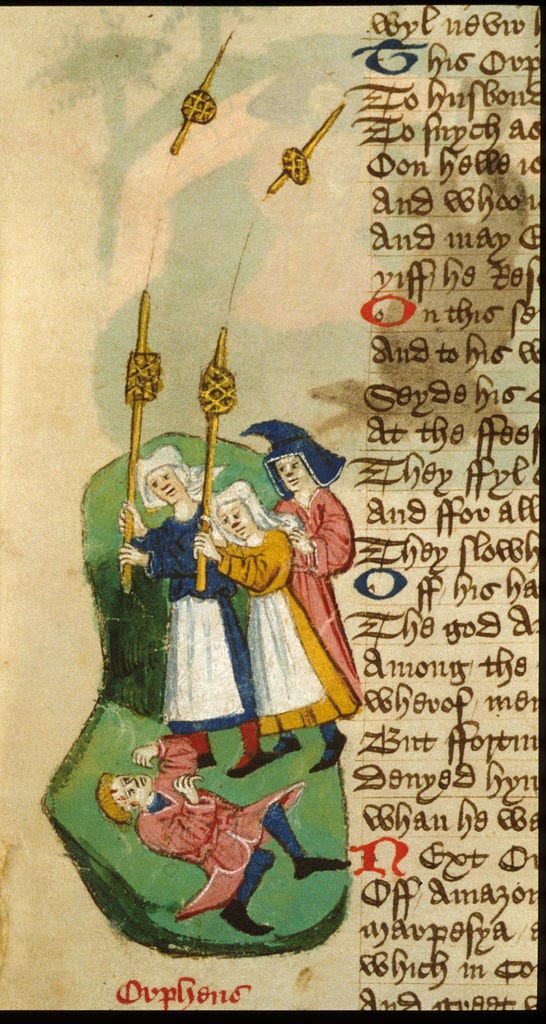 wyl nevir h
This Orp
To husbond
To such as
Oon helle is
And whoo
And may
yiff he Res
On this se
And to his w
Seyde his
At the ffees
They ffyl
And ffor all
They slowh
Off his ha
The god A
Among the
wherof men
But ffortun
denyed hym
whan he wa
Next Or
Off Amazon
marpesya
which in Co
And greet
Orpheus